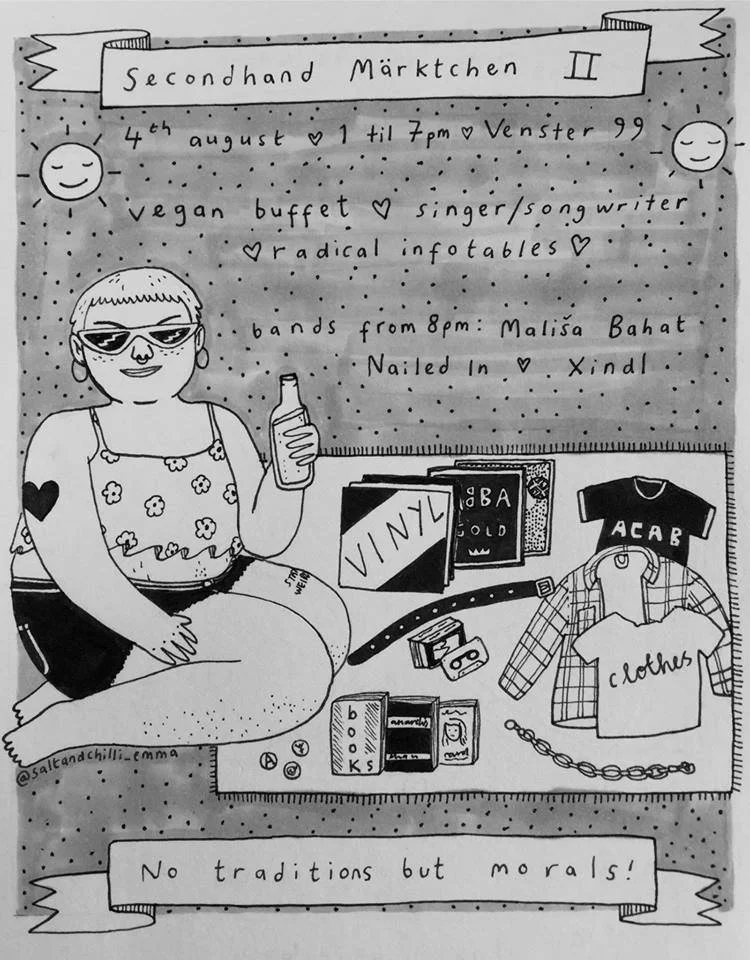 Secondhand Märktchen II
4th august ♡ 1 til 7pm ♡ Venster 99
vegan buffet ♡ singer/songwriter
♡ radical infotables ♡
bands from 8pm: Mališa Bahat
Nailed In ♡ Xindl
VINYL
ABBA
GOLD
ACAB
STAY
WEIRD
clothes
books
anarchy
A
@saltandchilli_emma
No traditions but morals!